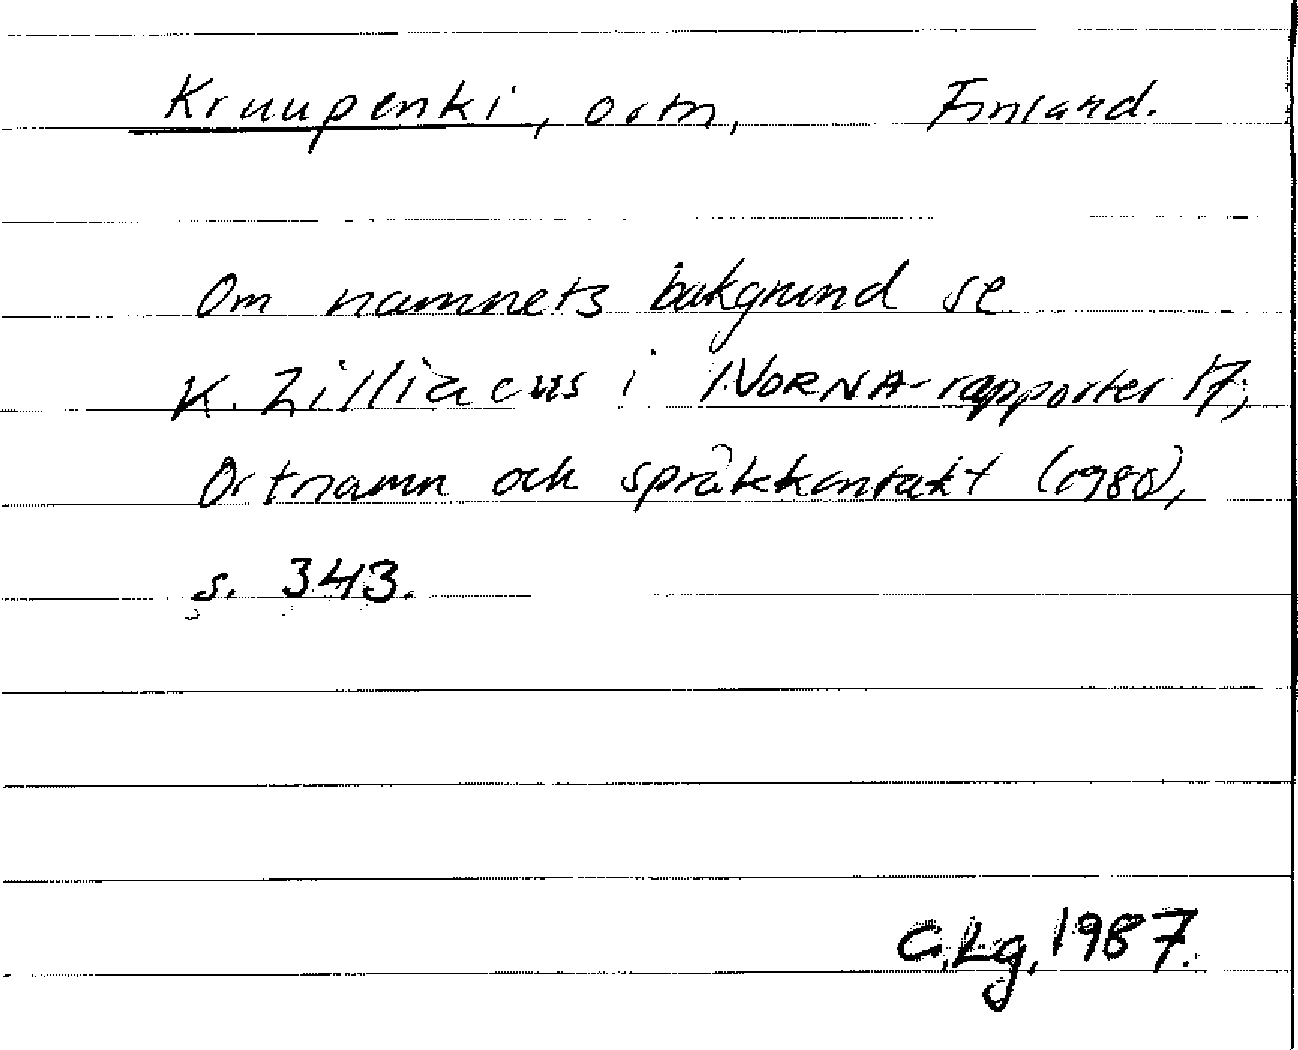 Kruupenki, ortn, Finland.
Om namnets bakgrund se
K. Zilliacus i NORNA-rapporter 17,
Ortnamn och språkkontakt (1980),
s. 343.
G.Lg, 1987.